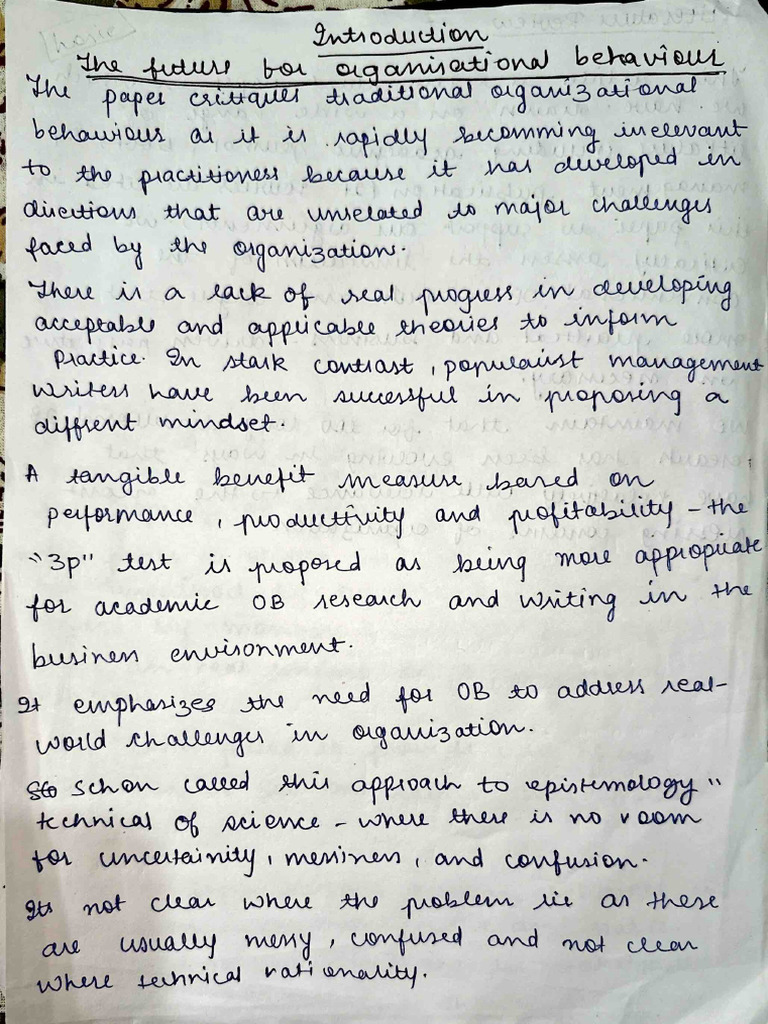 Introduction
The future for organisational behaviour
The paper critiques traditional organizational
behaviour as it is rapidly becomming irrelevant
to the practitioners because it has developed in
directions that are unrelated to major challenges
faced by the organization.
There is a lack of real progress in developing
acceptable and applicable theories to inform
practice. In stark contrast, populairst management
writers have been successful in proposing a
diffrent mindset.
A tangible benefit measure based on
performance, productivity and profitability - the
"3p" test is proposed as being more appropriate
for academic OB research and writing in the
business environment.
It emphasizes the need for OB to address real-
world challenges in organization.
Schon called this approach to epistemology "
technical of science - where there is no room
for uncertainity, messiness, and confusion.
Its not clear where the problem lie as these
are usually messy, confused and not clear
where technical rationality.